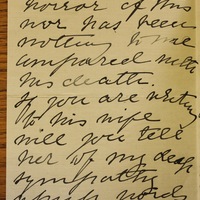 horror of this
war has been
nothing to me
compared with
his death.
If you are writing
to his wife
will you tell
her of my deep
sympathy
words